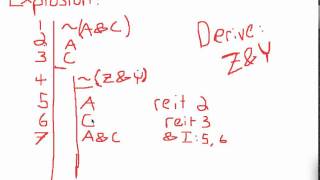 Explosion:
1 ~(A&C)
2 A
3 C
Derive: Z&Y
4 ~(Z&Y)
5 A reit 2
6 C reit 3
7 A&C &I:5,6